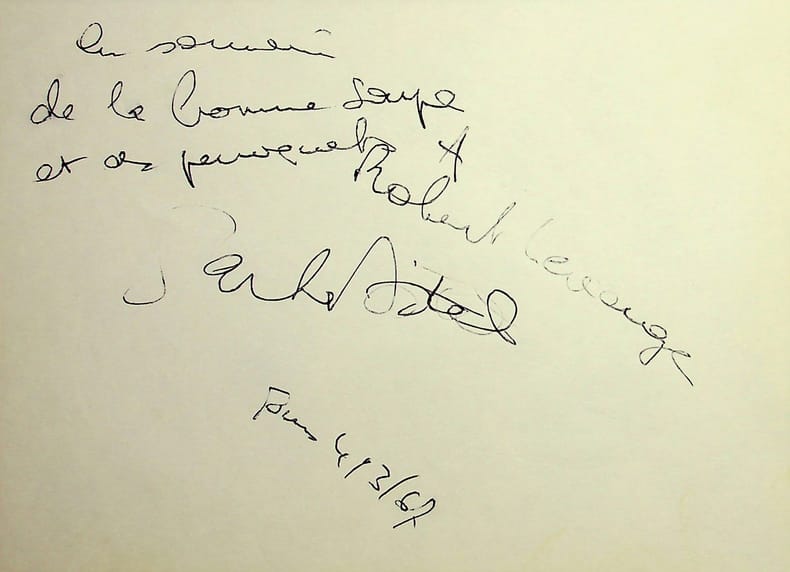 En souvenir
de la bonne soupe
et des perroquets
Robert
Sacha Distel
4/3/67